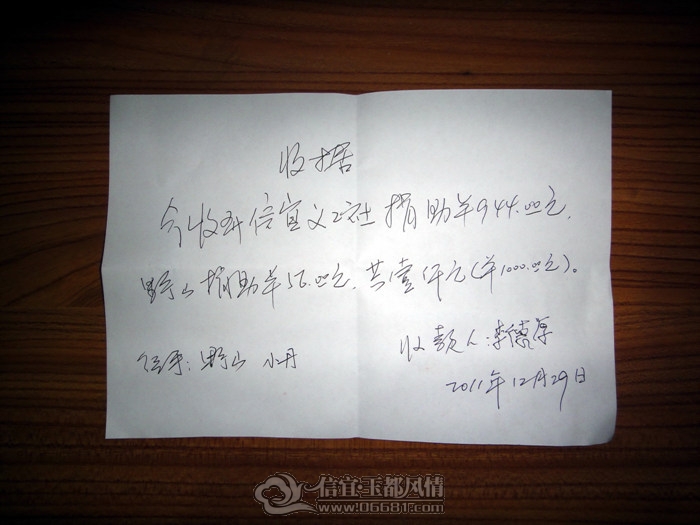 收据
今收到信宜义工社捐助¥944.00元,
野山捐助¥56.00元,共壹仟元(¥1000.00元)。
经手:野山 小丹
收款人:李
2011年12月29日
信宜·玉都风情
www.06681.com